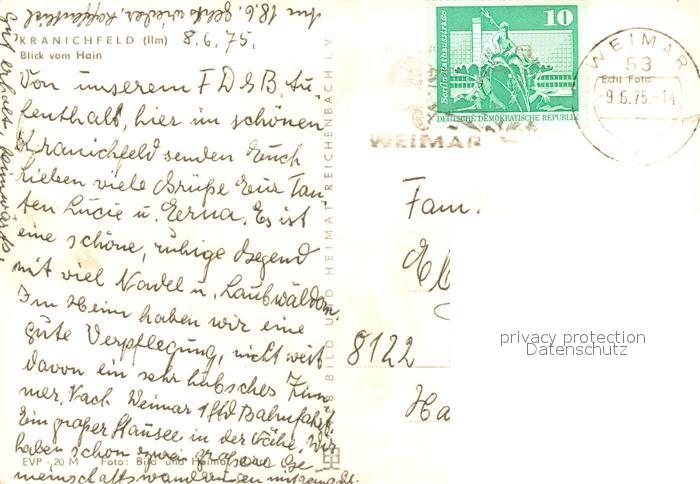 Am 18.6. geht's wieder, hoffentlich
gut erholt, heimwärts.
KRANICHFELD (Ilm) 8.6.75.
Blick vom Hain
Von unserem F D G B. Au-
fenthalt, hier im schönen
Kranichfeld senden Euch
lieben viele Grüße Eure Tan-
ten Lucie u. Erna. Es ist
eine schöne, ruhige Gegend
mit viel Nadel u. Laubwäldern.
Im Heim haben wir eine
gute Verpflegung, nicht weit
davon ein sehr hübsches Zim-
mer. Nach Weimar 1 Std Bahnfahrt.
Ein großer Stausee in der Nähe. Wir
haben schon zwei größere Ge-
meinschaftswanderungen mitgemacht.
EVP -20 M Foto: Bild und Heimat
BILD UND HEIMAT REICHENBACH I. V.
Berlin, Rathausstraße
10
DEUTSCHE DEMOKRATISCHE REPUBLIK
WEIMAR
WEIMAR
53
Echt Foto
-9.6.75.-14
Fam.
8122
Ha
privacy protection
Datenschutz